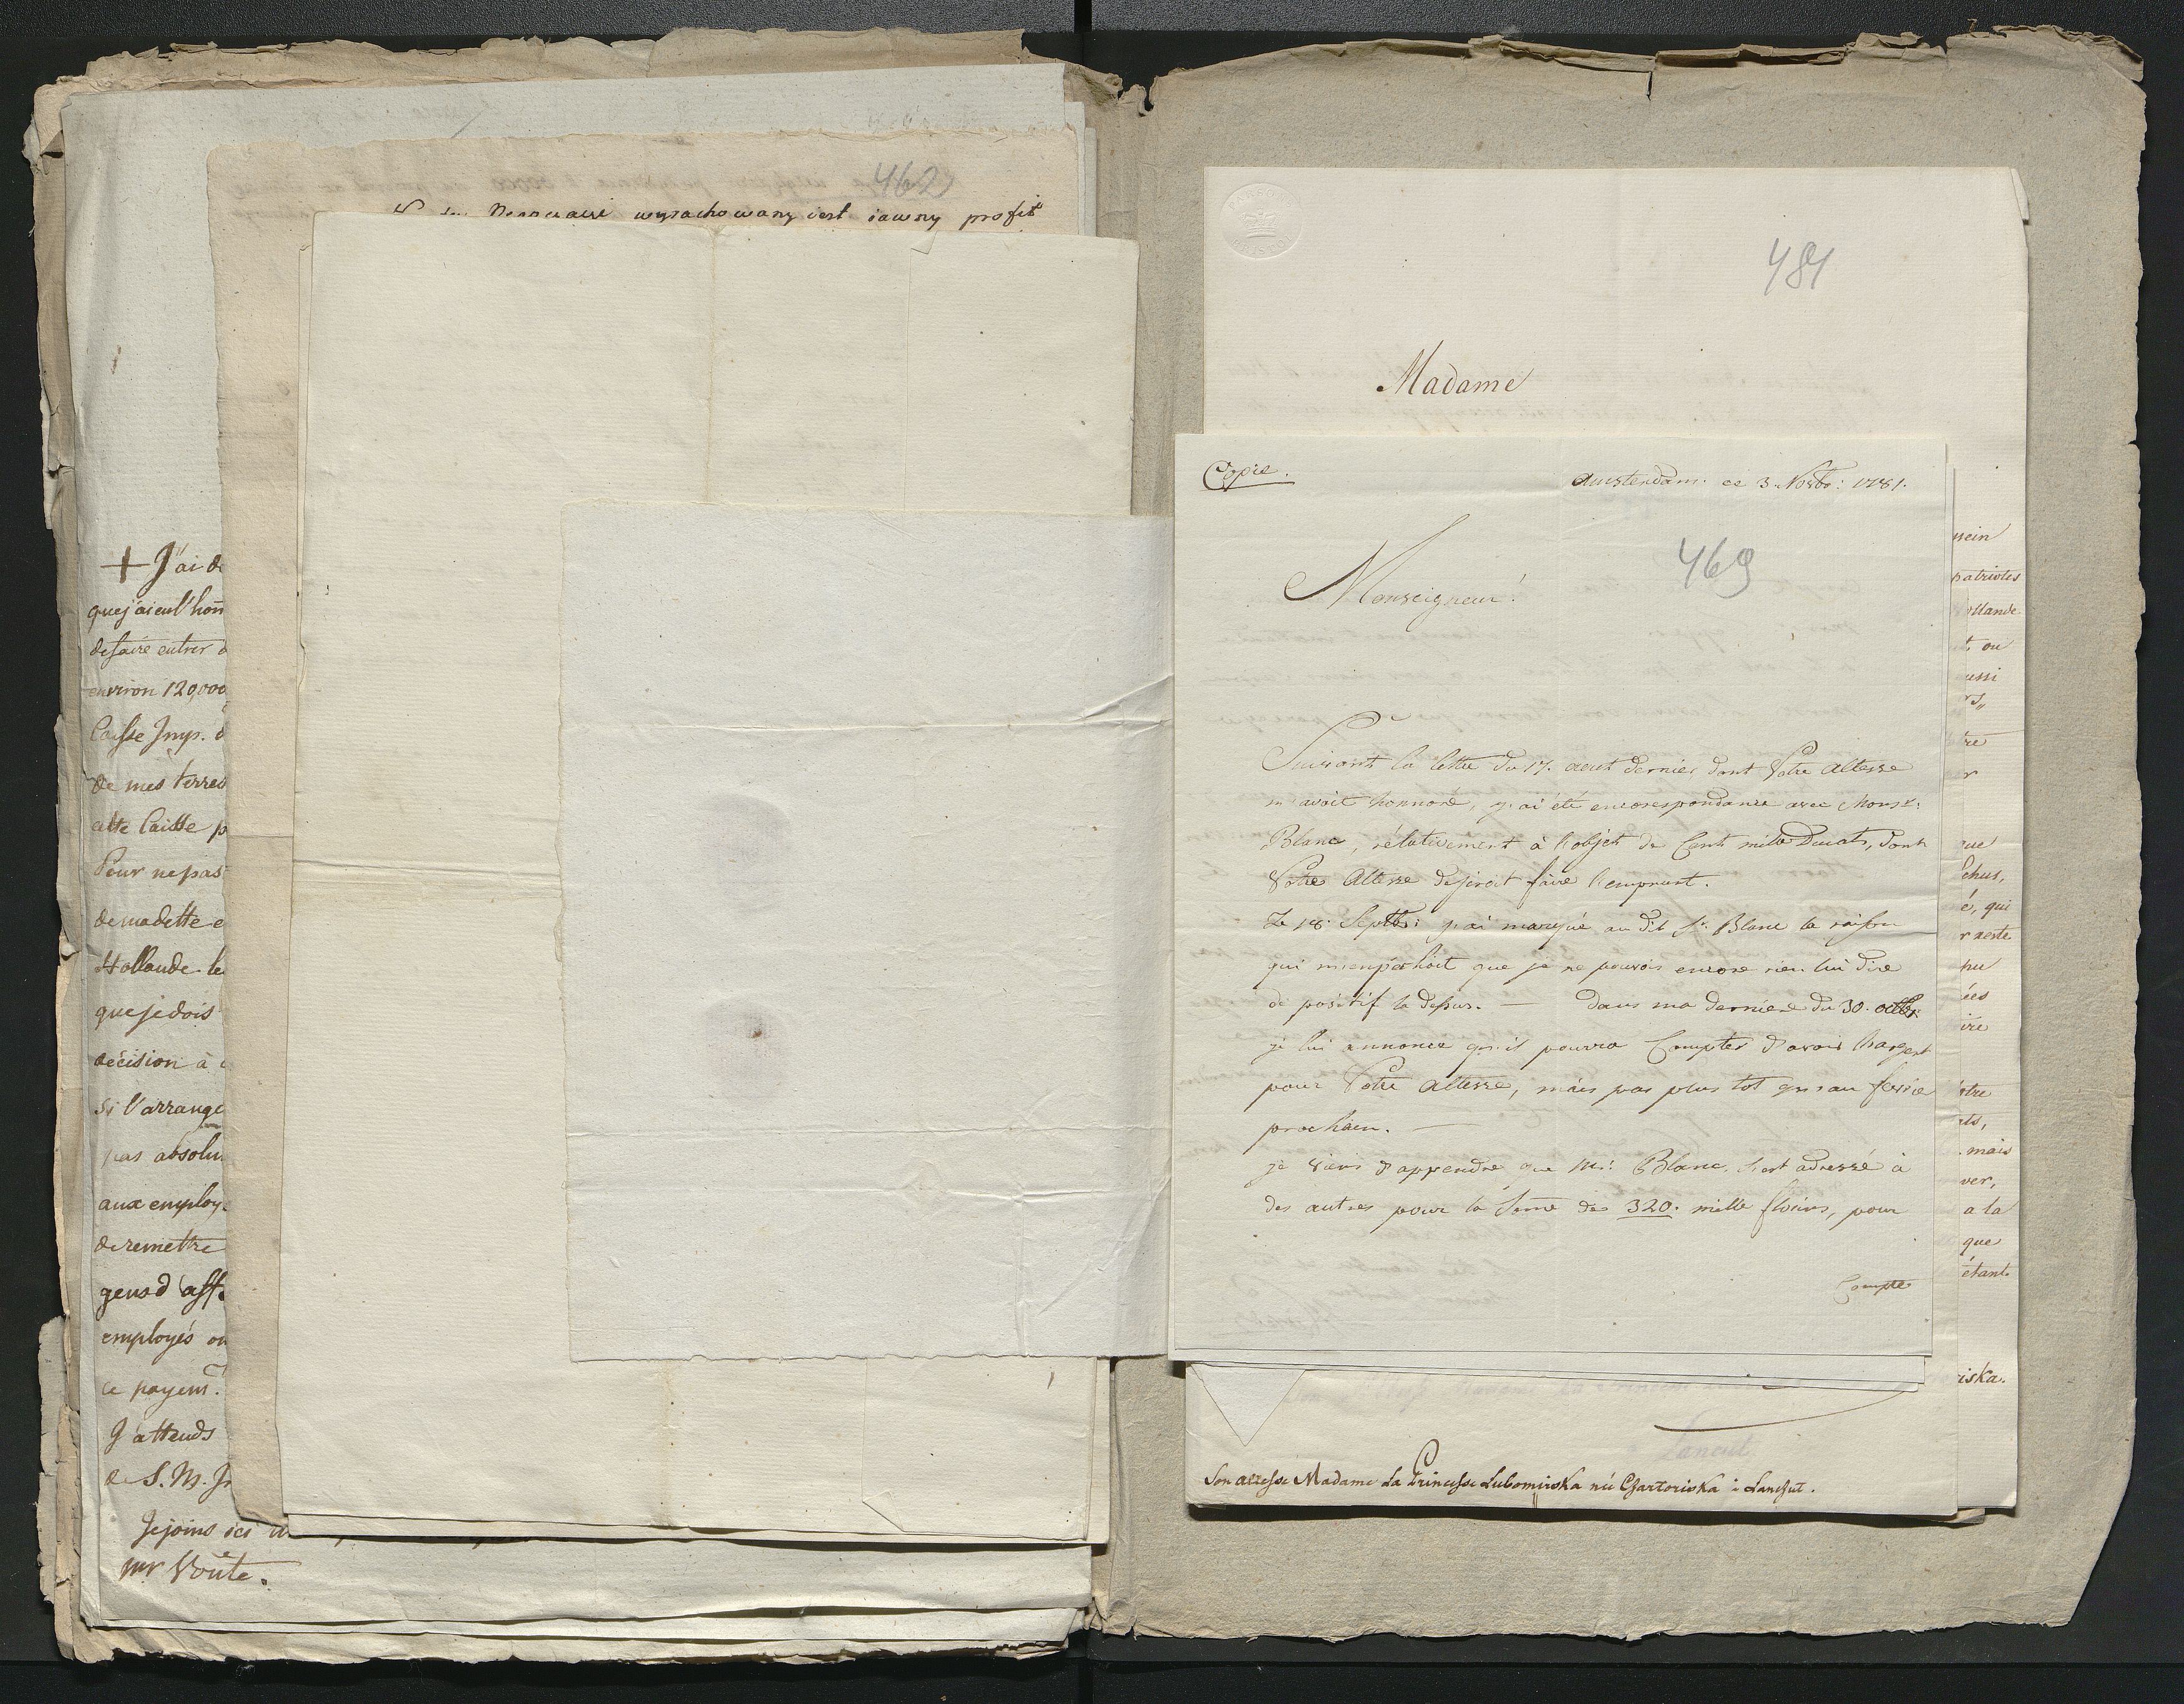 462
wyrachowany iest iawny profit
+ J'ai de
que j'ai eu l'hon
de faire entrer d
environ 120,000
Caisse Imp. d
de mes terres
cette Caisse p
Pour ne pas
de ma dette e
Hollande le
que je dois
décision à
si l'arrange
pas absolu
aux employ
de remettre
gens d'aff.
employés on
ce payem.t
J'attends
de S. M. J
Je joins ici
mr Voute.
484
Madame
Copie.
Amsterdam ce 3. Novbr: 1781.
469
Monseigneur!
Suivant la lettre du 17. aout dernier dont Votre Altesse
m'avoit honnoré, j'ai été en corespondance avec Monsr:
Blanc, rélativement à l'objet de Cent mille Ducats, dont
Votre Altesse desiroit faire l'emprunt.
Le 18. Septbr: j'ai marqué au dit Sr. Blanc la raison
qui m'empéchoit que je ne pouvois encore rien lui dire
de positif la dessus. — Dans ma derniere du 30. octbr:
je lui annonce qu'il pourra Compter d'avoir l'argent
pour Votre Altesse, mais pas plus tot qu'au fevrie
prochain. —
je viens d'apprendre que Mr: Blanc s'est adressé à
des autres pour la Some de 320. mille florins, pour
Compte
sein
patriotes
ollande
t ou
ussi
rs,,
tre
r
que
chus,
é, qui
r reste
pu
ées
ire
otre
ts,
. mais
ver,
a la
que
étant
iska.
Lancut
Son altesse Madame La Princesse Lubomirska née Czartoriska à Lanzut.